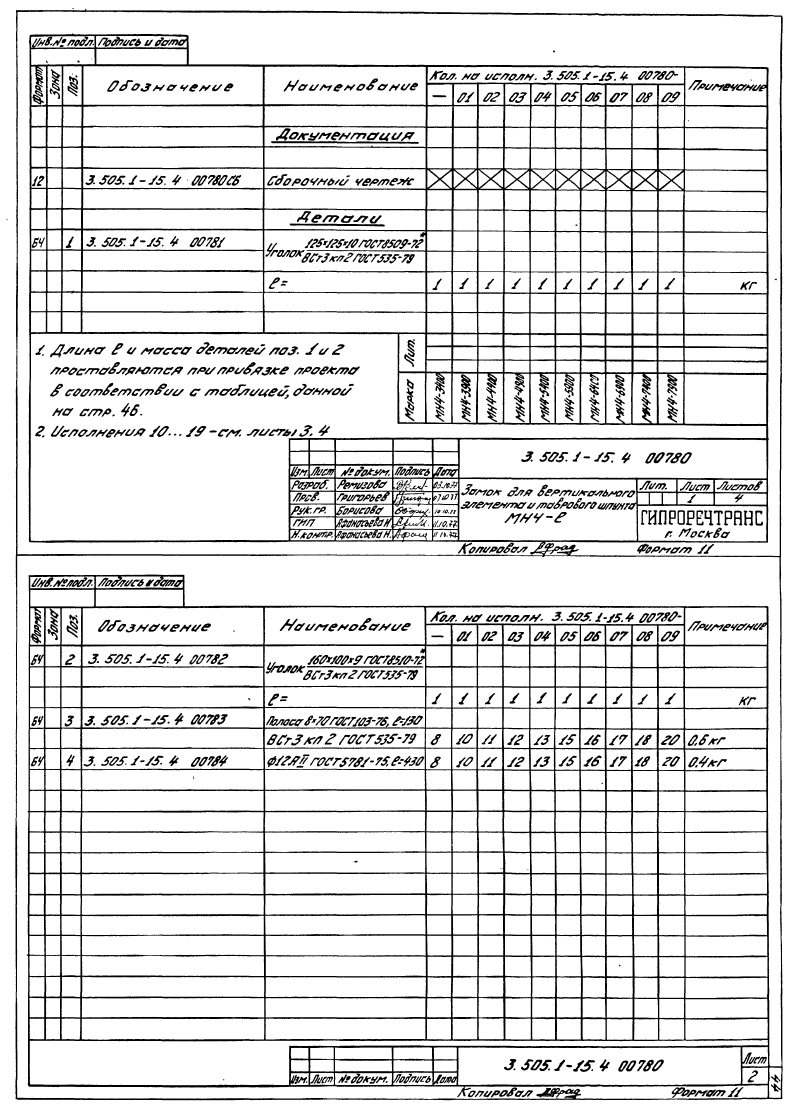 Инв.№ подл. Подпись и дата
Формат Зона Поз. Обозначение Наименование Кол. на исполн. 3.505.1-15.4 00780- Примечание
— 01 02 03 04 05 06 07 08 09
Документация
12 3.505.1-15.4 00780СБ Сборочный чертеж
Детали
БЧ 1 3.505.1-15.4 00781 Уголок 125×125×10 ГОСТ 8509-72*
ВСт3кп2 ГОСТ 535-79
ℓ= 1 1 1 1 1 1 1 1 1 1 кг
1. Длина ℓ и масса деталей поз. 1 и 2
проставляются при привязке проекта
в соответствии с таблицей, данной
на стр. 46.
2. Исполнения 10...19 - см. листы 3, 4
Лит.
Марка МН4-3400 МН4-3900 МН4-4400 МН4-4900 МН4-5400 МН4-5900 МН4-6400 МН4-6900 МН4-7400 МН4-7900
3.505.1-15.4 00780
Изм. Лист № докум. Подпись Дата
Разраб. Ремизова
Пров. Григорьев
Рук. гр. Борисова
ГИП Афанасьева Н.
Н.контр. Афанасьева Н.
Замок для вертикального
элемента и таврового шпунта
МН4-ℓ
Лит. Лист Листов
1 4
ГИПРОРЕЧТРАНС
г. Москва
Копировал Формат 11
Инв.№ подл. Подпись и дата
Формат Зона Поз. Обозначение Наименование Кол. на исполн. 3.505.1-15.4 00780- Примечание
— 01 02 03 04 05 06 07 08 09
БЧ 2 3.505.1-15.4 00782 Уголок 160×100×9 ГОСТ 8510-72*
ВСт3кп2 ГОСТ 535-79
ℓ= 1 1 1 1 1 1 1 1 1 1 кг
БЧ 3 3.505.1-15.4 00783 Полоса 8×70 ГОСТ 103-76, ℓ=130
ВСт3кп2 ГОСТ 535-79 8 10 11 12 13 15 16 17 18 20 0,6 кг
БЧ 4 3.505.1-15.4 00784 ф12АII ГОСТ 5781-75, ℓ=430 8 10 11 12 13 15 16 17 18 20 0,4 кг
3.505.1-15.4 00780
Лист
2
Изм. Лист № докум. Подпись Дата
Копировал Формат 11
44